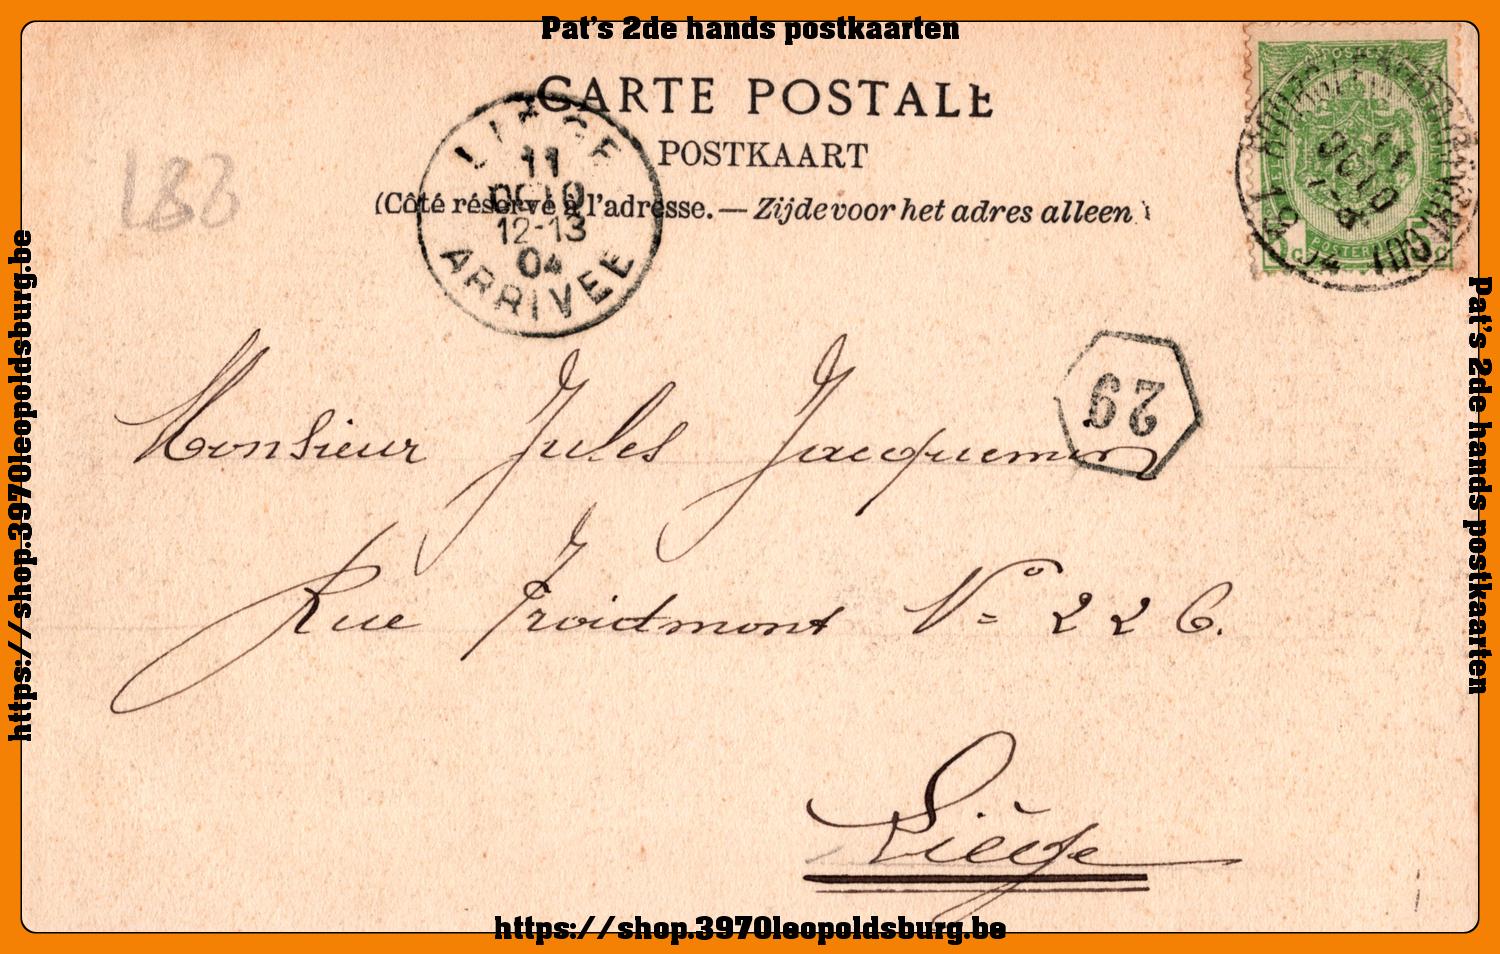 Pat's 2de hands postkaarten
CARTE POSTALE
POSTKAART
(Côté réservé à l'adresse. — Zijde voor het adres alleen
LIEGE
11
OCTO
12-13
04
ARRIVEE
29
LBB
POSTES
POSTERIJEN
Monsieur Jules Jacquemin
Rue Froidmont No 226.
Liège
https://shop.3970leopoldsburg.be
Pat's 2de hands postkaarten
https://shop.3970leopoldsburg.be